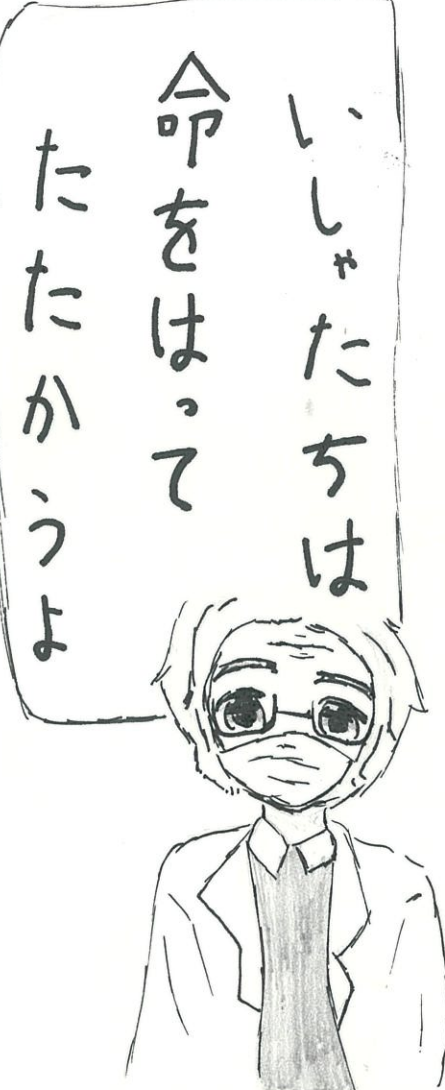 いしゃたちは
命をはって
たたかうよ